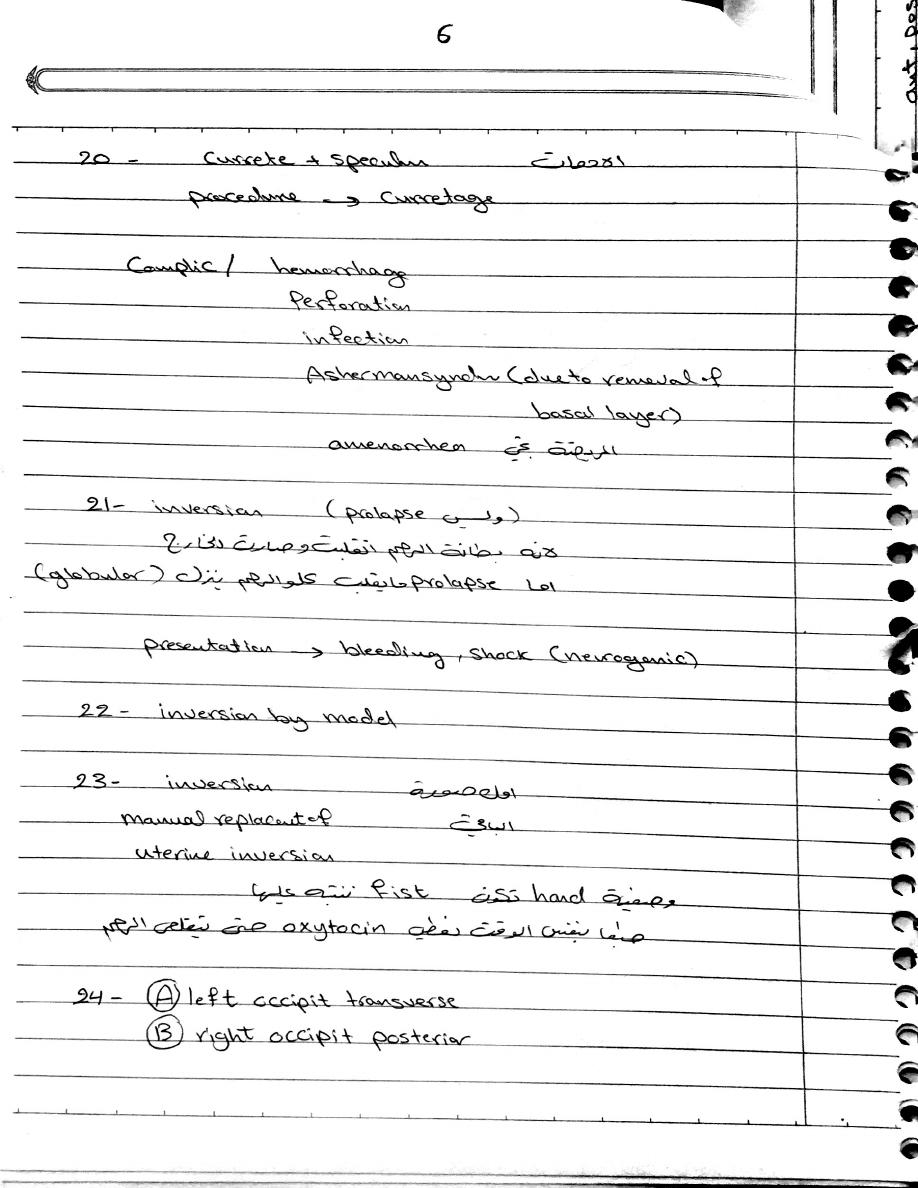 6
ant, pos
20 - Currete + speculum الادوات
procedure -> Curretage
Complic / hemorrhage
Perforation
infection
Asherman syndr (due to removal of
basal layer)
المريضة تجي amenorrhea
21- inversion (prolapse وليس)
لانه بطانة الرحم انقلبت وصارت للخارج
اما prolapse مايقلب كلو الرحم نزل (globular)
presentation -> bleeding, shock (neurogenic)
22 - inversion by model
23- inversion
manual replacent of
uterine inversion
وضعية hand تكون fist ننتبه عليها
بنفس الوقت نعطي oxytocin حتى يتقلص الرحم
24 - (A) left occipit transverse
(B) right occipit posterior